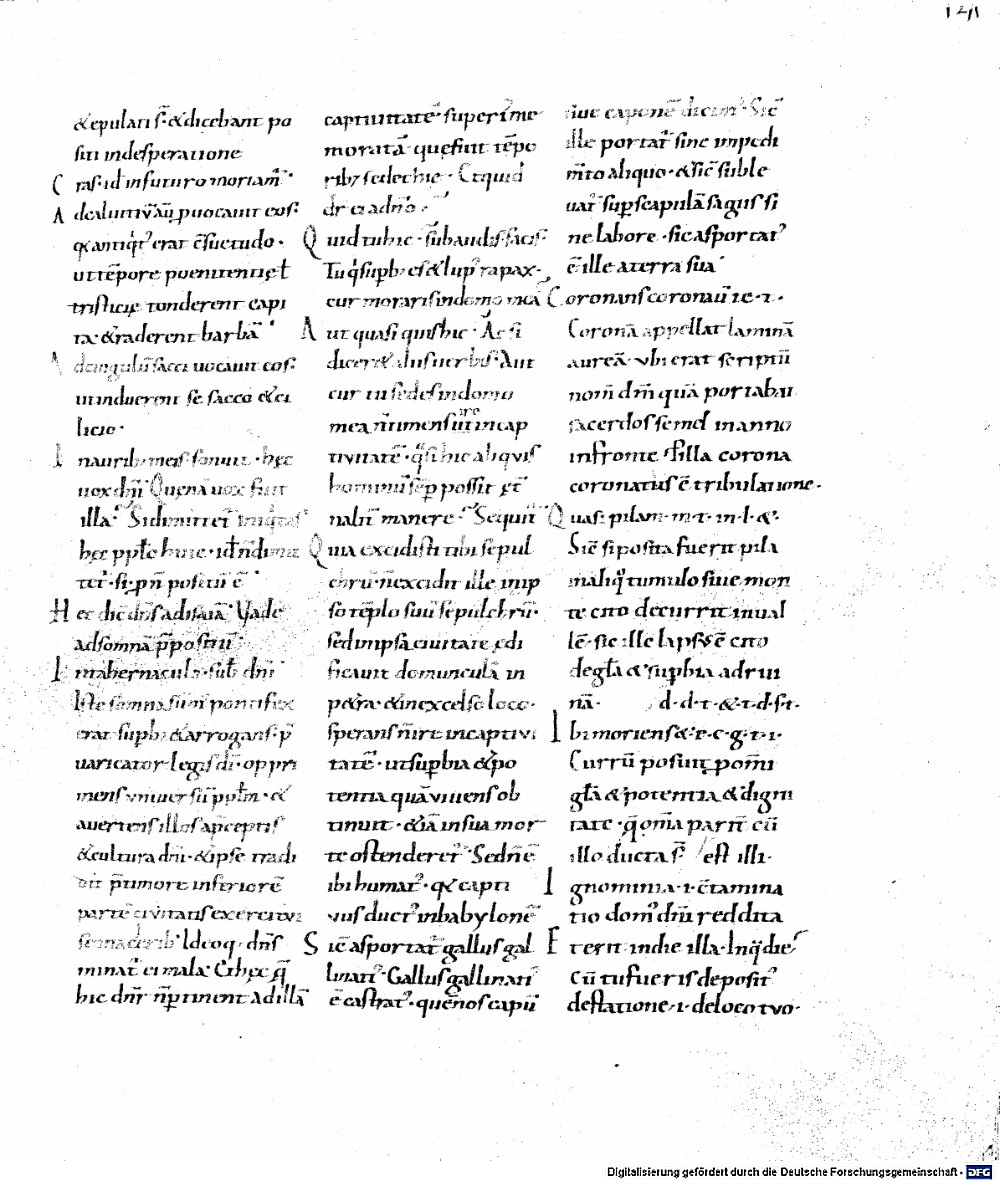 &epulari s̄· &dicebant po
siti indesperatione
Cras· id̄ infuturo moriam̄·
Adcaluitiū·
q̄a antiq̄t' erat c̄suetudo·
uttēpore poenitentię t̄
tristicię tonderent capi
ta· &raderent barbā·
Adcingulū sacci uocauit eos·
utinduerent se sacco &ci
licio·
Inaurib; meis sonuit· hęc
uox dn̄i Quenā uox fuit
illa·
Hec dic̄ dn̄s adisaiā· Vade
adsomnā p̄positū·
Intabernaculo· sub dn̄i
Iste somna sūm' pontifex
erat supb; &arrogans· p̄
uaricator legis dī· oppri
mens uniuersū pplm̄· &
auertens illos ap̄ceptis
&cultura dn̄i· &ipse tradi
dit p̄timore inferiorē
partē ciuitatis exercitui
Ideoq; dn̄s
minat' ei mala·
hic dn̄r n̄ptinent adillā
captiuitatē superi'me
moratā· quefuit tēpo
rib; sedechię· Et quid
dr̄ ei adn̄o·
Quid tu hic· subaudis· facis·
Tu q̄ supb; es &lup' rapax·
cur moraris indomo mea
Aut quasi quis hic· Ac si
diceret aliis uerbis· Aut
cur tu sedes indomo
mea n̄timens ut ire incap
tiuitatē· q̄si hic aliquis
hominū sēp possit &
nabit' manere· Sequit'
Quia excidisti tibi sepul
chrū· n̄excidit ille inip
so tēplo suū sepulchrū·
sed inipsa ciuitate ędi
ficauit domunculā in
petra· &inexcelso loco·
sperans n̄ ire incaptiui
tatē· ut supbia &po
tentia quā uiuens ob
tinuit· &iā insua mor
te ostenderet· Sed n̄ ē
ibi humat'· q̄a capti
uus duct' inbabylonē
Sic̄ asportat' gallus gal
linati'· Gallus gallinati'
ē castrat'· quē nos capū
siue caponē dicim'· Sic̄
ille portat' sine impedi
m̄to aliquo· &sic̄ suble
uat' sup scapulā sagus si
ne labore· sic asportat'
ē ille aterra sua
Coronans coronauit te· t·
Coronā appellat laminā
aureā· ubi erat scriptū
nom̄ dn̄i quā portabat
sacerdos semel in anno
infronte s· illa corona
coronatus ē tribulatione·
Quasi pilam· m· t· in· l· &·
Sic̄ siposita fuerit pila
in aliq̄ tumulo siue mon
te cito decurrit inual
lē· sic ille lapsus ē cito
degl̄a &supbia adrui
nā· d· d· t· &· t· d· st·
Ibi moriens &· e· c· g· t· i·
Currū posuit p om̄i
gl̄a &potentia &digni
tate· q̄ om̄ia parit' cū
illo ducta s̄· est illi·
Ignominia· i· c̄tamina
tio dom' dn̄i reddita
Eterit indie illa· Inq̄ die
cū tu fueris deposit'
destatione· i· deloco tuo·
Digitalisierung gefördert durch die Deutsche Forschungsgemeinschaft - DFG